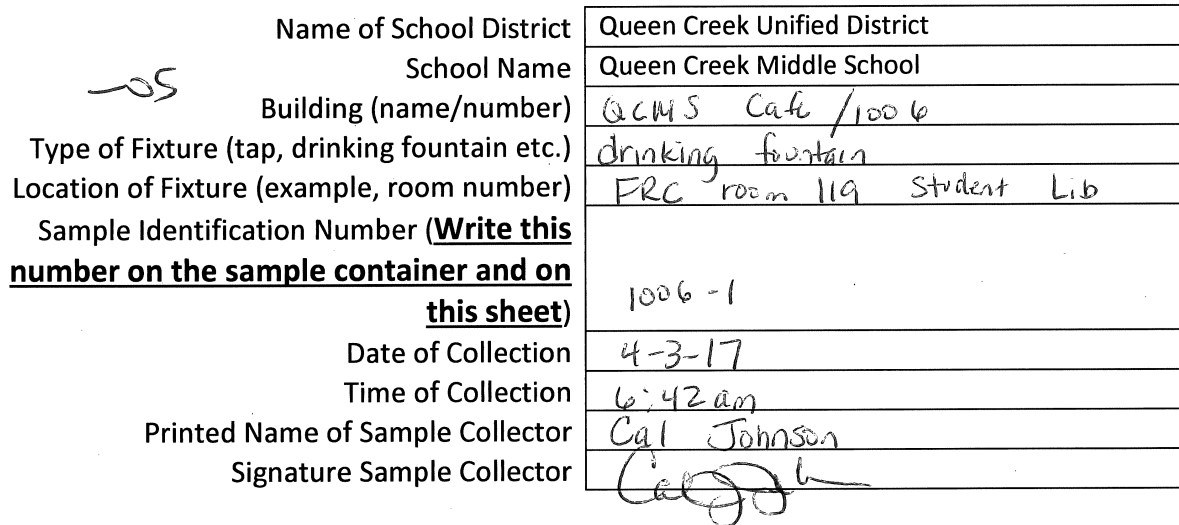 Name of School District Queen Creek Unified District
School Name Queen Creek Middle School
-05
Building (name/number) QCMS Cafe /1006
Type of Fixture (tap, drinking fountain etc.) drinking fountain
Location of Fixture (example, room number) FRC room 119 Student Lib
Sample Identification Number (Write this
number on the sample container and on
this sheet) 1006-1
Date of Collection 4-3-17
Time of Collection 6:42 am
Printed Name of Sample Collector Cal Johnson
Signature Sample Collector